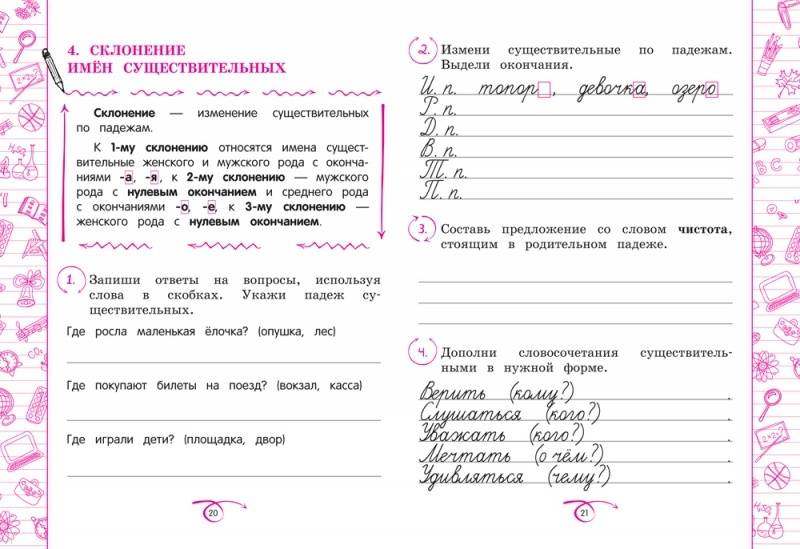 4. СКЛОНЕНИЕ
ИМЁН СУЩЕСТВИТЕЛЬНЫХ
Склонение — изменение существительных
по падежам.
К 1-му склонению относятся имена сущест-
вительные женского и мужского рода с оконча-
ниями -а, -я, к 2-му склонению — мужского
рода с нулевым окончанием и среднего рода
с окончаниями -о, -е, к 3-му склонению —
женского рода с нулевым окончанием.
1. Запиши ответы на вопросы, используя
слова в скобках. Укажи падеж су-
ществительных.
Где росла маленькая ёлочка? (опушка, лес)
Где покупают билеты на поезд? (вокзал, касса)
Где играли дети? (площадка, двор)
20
2. Измени существительные по падежам.
Выдели окончания.
И. п. топор , девочка, озеро
Р. п.
Д. п.
В. п.
Т. п.
П. п.
3. Составь предложение со словом чистота,
стоящим в родительном падеже.
4. Дополни словосочетания существитель-
ными в нужной форме.
Верить (кому?) .
Слушаться (кого?) .
Уважать (кого?) .
Мечтать (о чём?) .
Удивляться (чему?) .
21